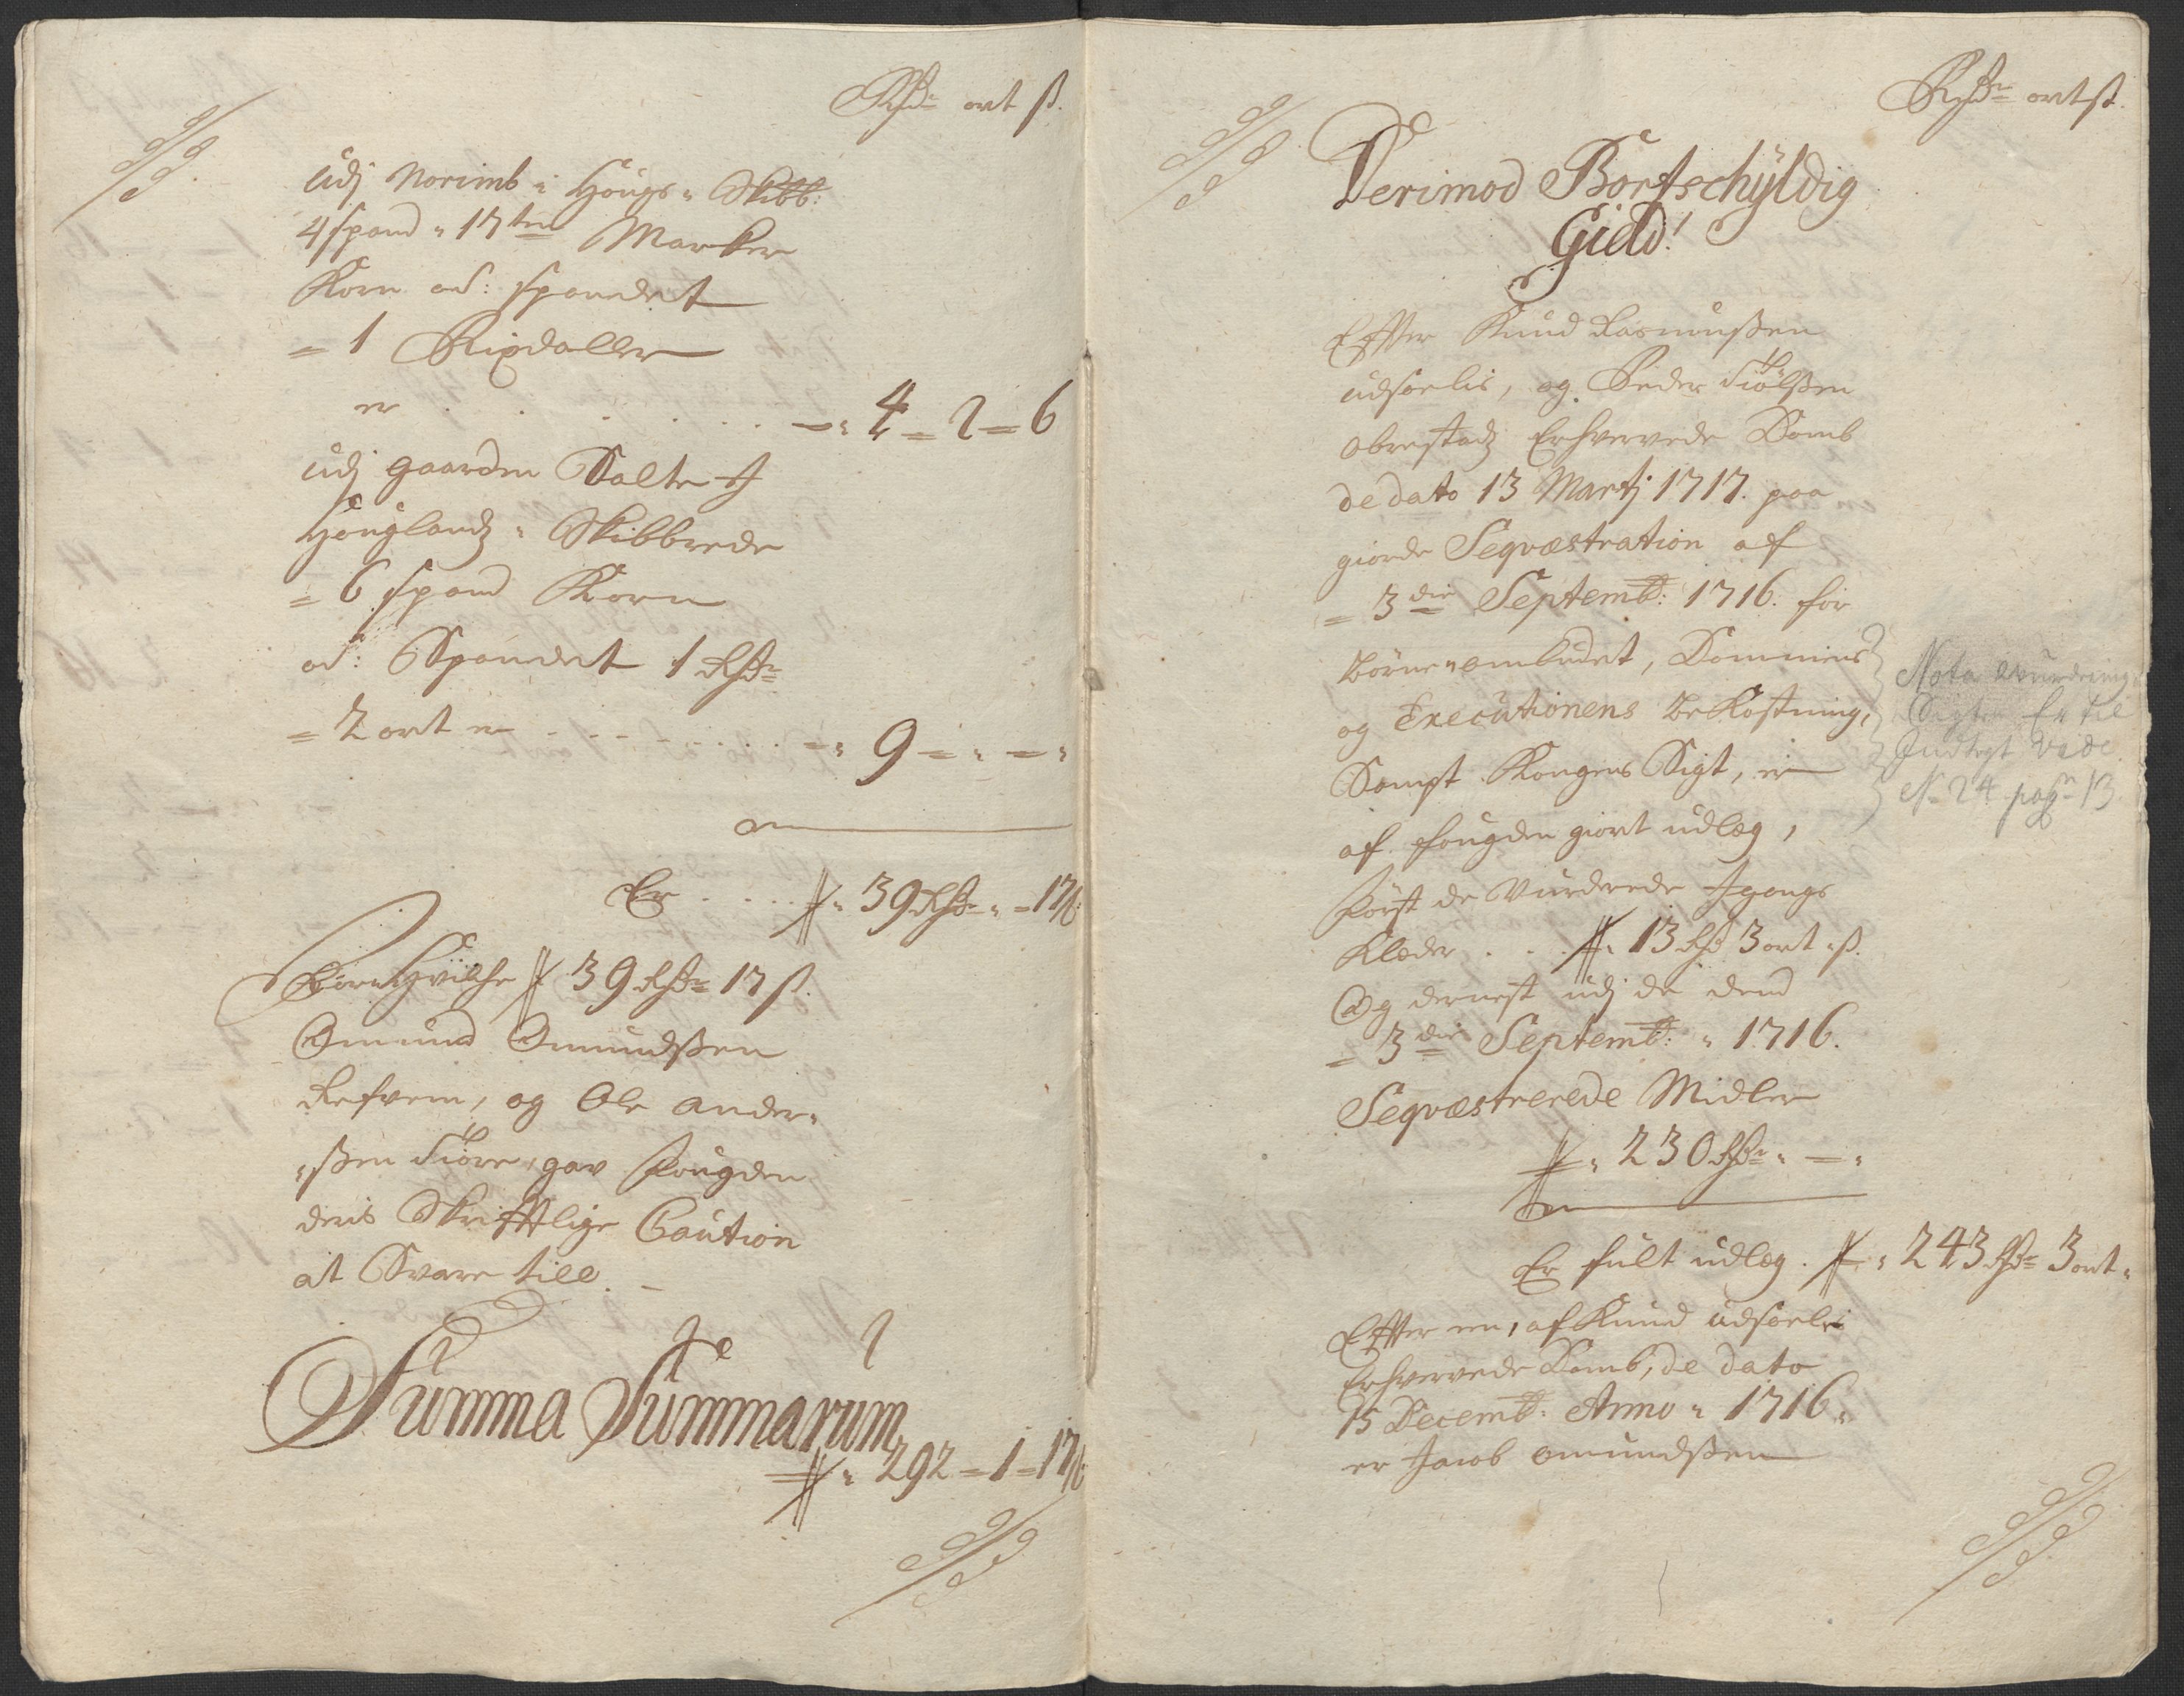 Rdr ort ß.
Udj Norimb i Hougs Skibb:
4 spand 17ten Marker
Korn ad: spandet
= 1 Rixdaller
er . . . . . . 4 = 2 = 6
Udj gaarden Salte I
Houglandz Skibbrede
= 6 spand Korn
ad: Spandet 1 Rdr
= 2 ort er . . . . . 9 = " = "
Er . . . . 39 Rdr " = 17 ß
for Hvilche 39 Rdr 17 ß.
Omund Omundßen
Refvem, og Ole Ander,
,ßen Tiøre, gav fougden
deris Skrifftlige Caution
at Svare till.
Summa Summarum
292 = 1 = 17 ß
Rdr ort ß.
Derimod Bortschyldig
Gield!
Effter Knud Rasmußen
udsælis, og Peder Tiølßen
obrestadz Erhvervede Domb
de dato 13 Martj 1717. paa
giorde Seqvæstration af
= 3die Septembr: 1716. for
Børne ombudet, Dommens
og Executionens Bekostning,
Sampt Kongens Sigt, er
af fougden giort udlæg,
først de Vurderede Igangs
Klæder . . . 13 Rd 3 ort " ß.
Og dernest udj de dend
= 3die Septembr: 1716.
Seqvæstrerede Midler
230 Rdr " — "
Er fult udlæg . 243 Rdr 3 ort "
Effter en, af Knud udsælis
Erhvervede Domb, de dato
15 Decembr: Anno 1716
er Jacob omundßen
Nota
Sigtn er til
Indtegt vide
No 24 pag 13